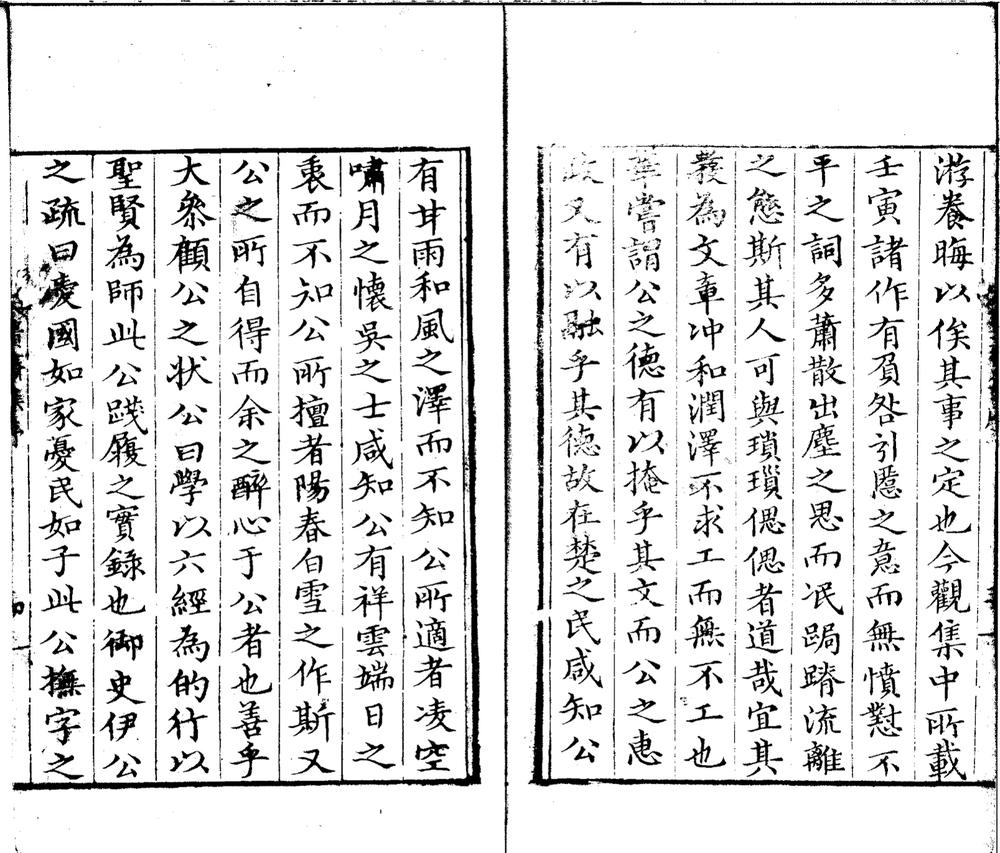 游養晦以俟其事之定也今觀集中所載
壬寅諸作有負咎引慝之意而無憤懟不
平之詞多蕭散出塵之思而泯跼蹐流離
之態斯其人可與瑣瑣偲偲者道哉宜其
發為文章冲和潤澤不求工而無不工也
華嘗謂公之德有以掩乎其文而公之惠
政又有以融乎其德故在楚之民咸知公
有甘雨和風之澤而不知公所適者凌空
嘯月之懷吳之士咸知公有祥雲端日之
衷而不知公所擅者陽春白雪之作斯又
公之所自得而余之醉心于公者也善乎
大叅顧公之狀公曰學以六經為的行以
聖賢為師此公踐履之實錄也御史伊公
之疏曰憂國如家憂民如子此公撫字之